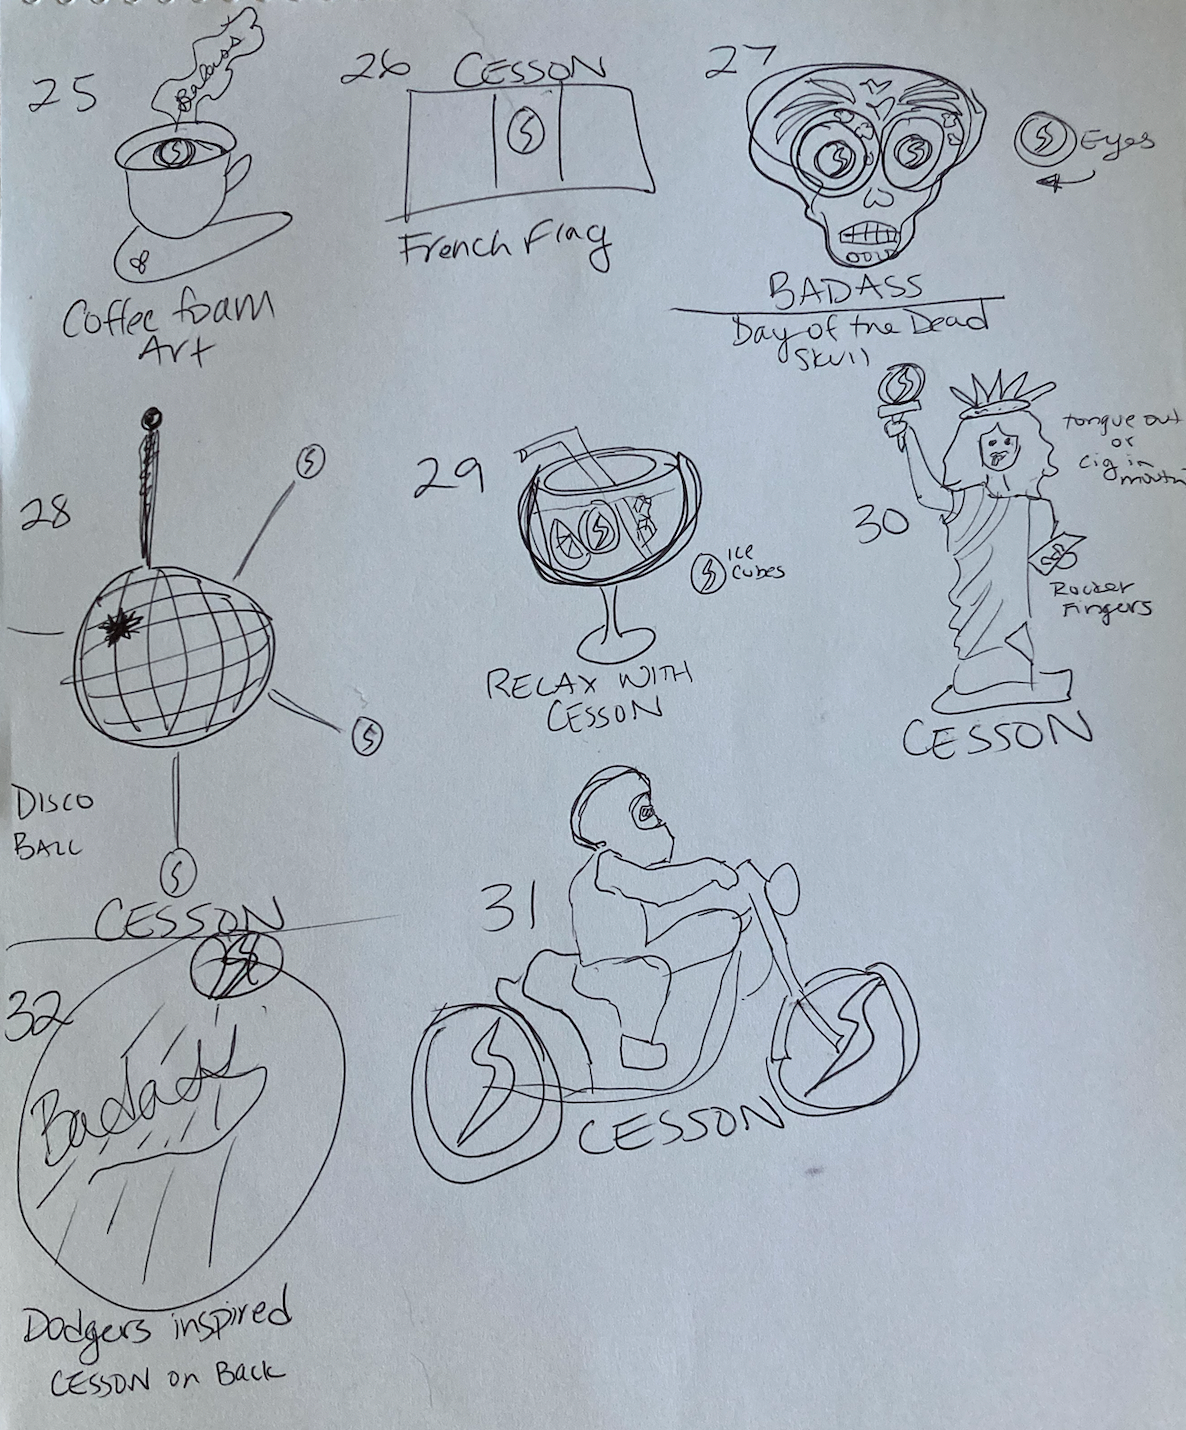 25
Badass
Coffee foam
Art
26
CESSON
French Flag
27
Eyes
BADASS
Day of the Dead
Skull
28
DISCO
BALL
CESSON
29
ICE
Cubes
RELAX WITH
CESSON
30
tongue out
or
cig in
mouth
Rocker
Fingers
CESSON
31
CESSON
32
Badass
Dodgers inspired
CESSON on Back